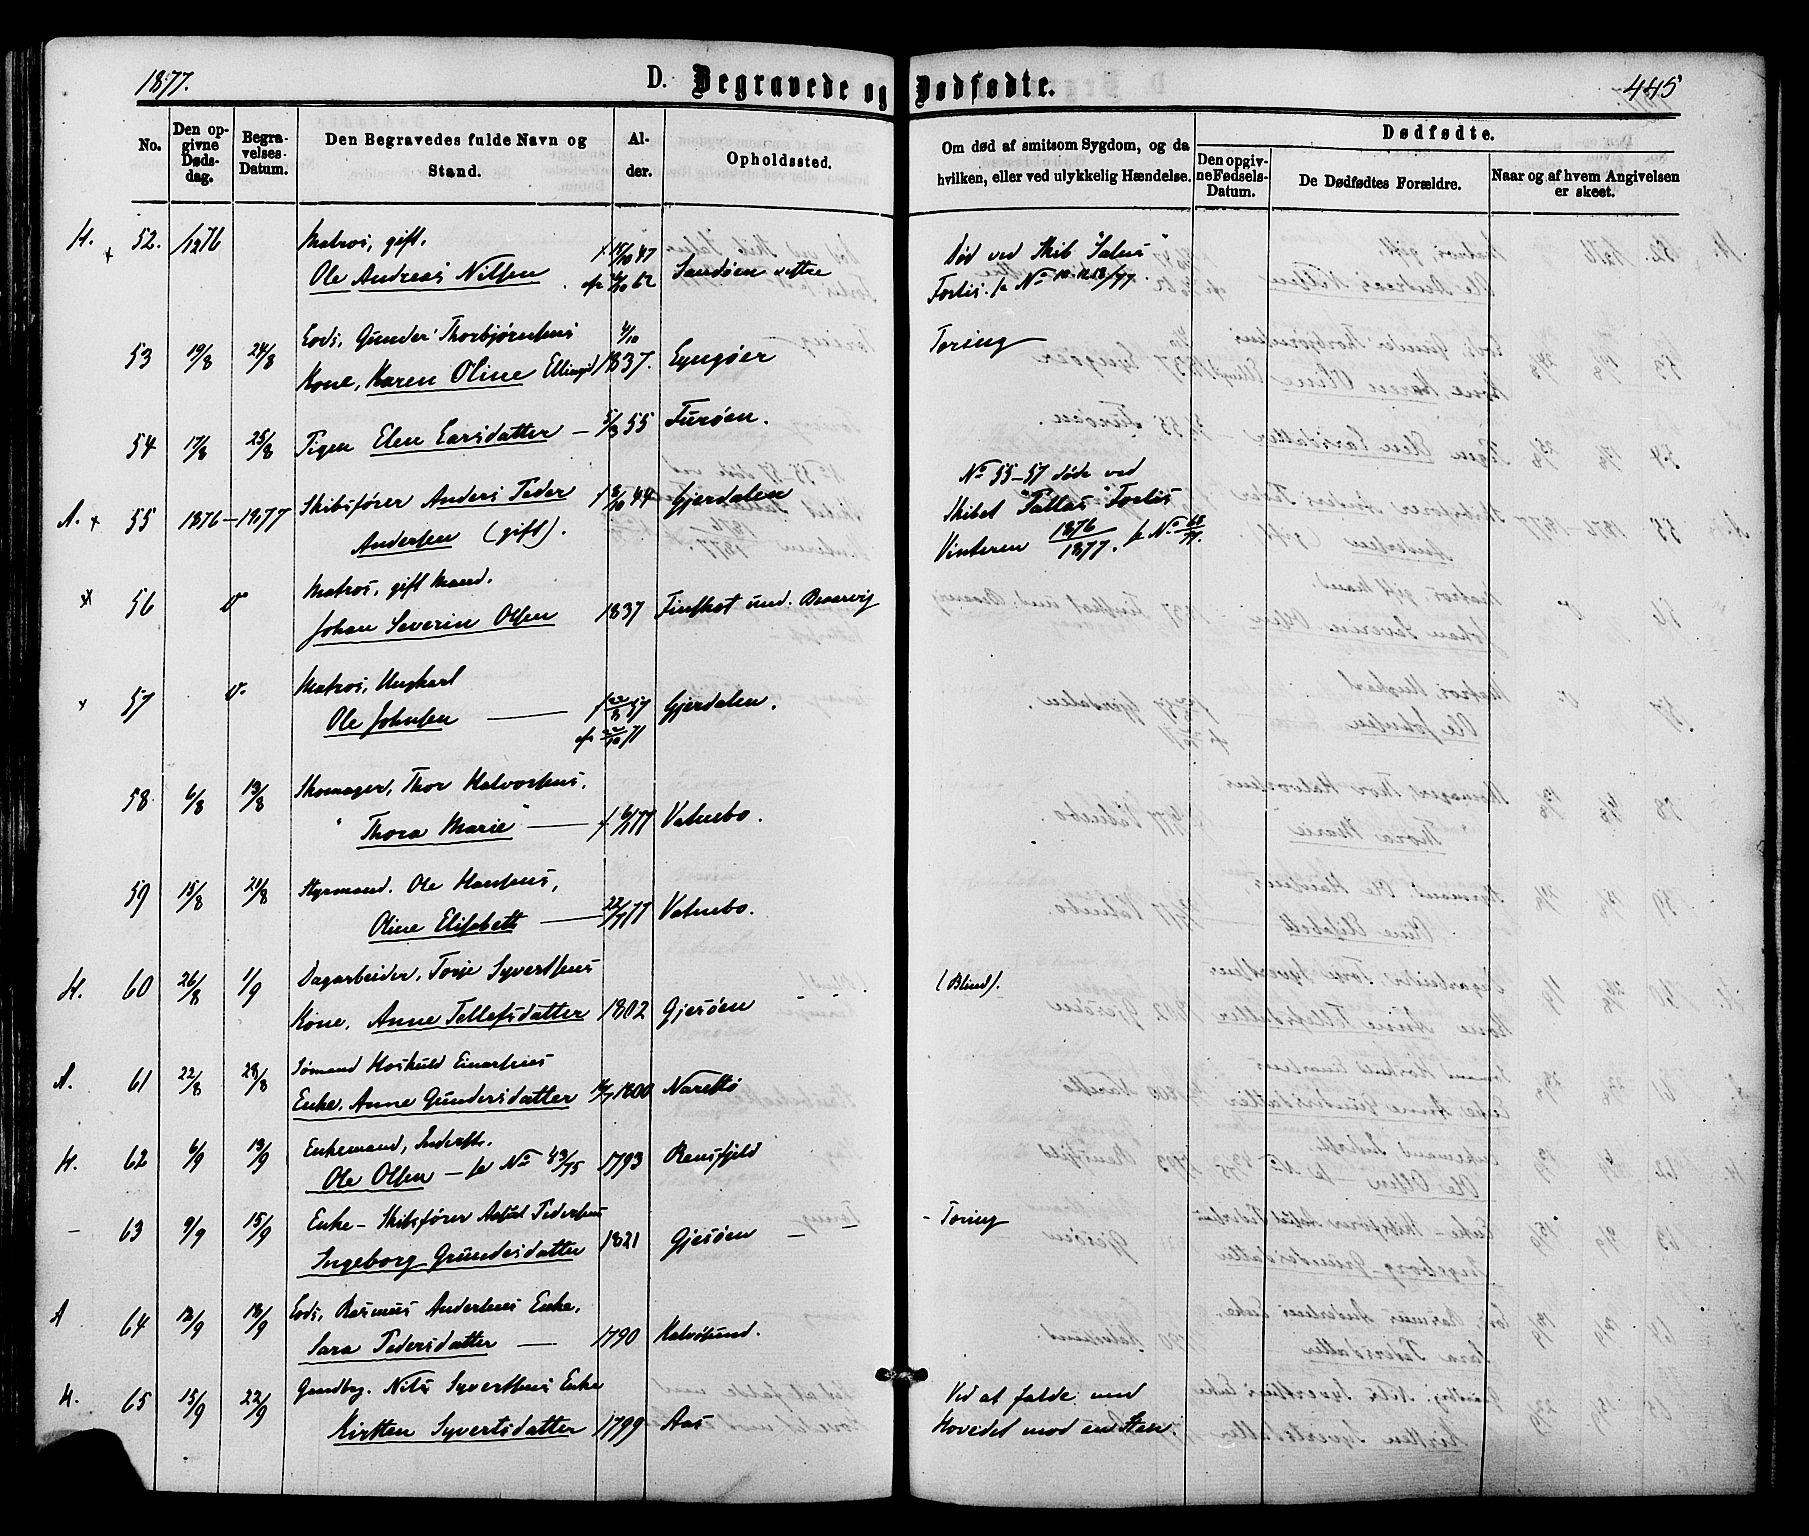 1877.
D. Begravede og Dødfødte.
445
No.
Den opgivne Dødsdag.
Begravelses-Datum.
Den Begravedes fulde Navn og Stand.
Alder.
Opholdssted.
Om død af smitsom Sygdom, og da hvilken, eller ved ulykkelig Hændelse.
Dødfødte.
Den opgivne Fødsels-Datum.
De Dødfødtes Forældre.
Naar og af hvem Angivelsen er skeet.
H. x 52. 1876 Matros, gift.
Ole Andreas Nilsen f 15/10 47 Sandøen vestre
Død ved Skib "Salus"
Forlis.
53 19/8 24/8 Lods, Gunder Thorbjørnsens
Kone, Karen Oline Ellingsd 4/10 1837. Lyngøer Tæring
54 17/8 25/8 Pigen Elen Larsdatter — 5/8 55 Furøen.
A. x 55 1876-1877 Skibsfører Anders Peder
Andersen (gift). 44 Gjerdalen
No 55-57 døde ved
Skibet "Pallas" Forlis
Vinteren 1876/1877.
x 56 Matros, gift Mand.
Johan Severin Olsen 1837 und.
x 57 Matros, Ungkarl
Ole Johnsen — 57 Gjerdalen.
71
58 6/8 13/8 Skomager, Thor Halvorsens,
" Thora Marie — f 6/7 77 Vatnebo.
59 15/8 20/8 Styrmand. Ole Hansens,
Oline Elisabeth — 22/7 77 Vatnebo.
H. 60 26/8 1/9 Dagarbeider, Torje Syvertsens
Kone, Anne Tellefsdatter 1802 Gjesøen (Blind).
A. 61 22/8 28/8 Sømand Hoskuld Einarsens
Enke, Anne Gundersdatter 1800 Narestø
H. 62 6/9 13/9 Enkemand, Inderst.
Ole Olsen — No 43/75 1793 Rensfjeld
- 63 9/9 15/9 Enke - Skibsfører Pedersens
Ingeborg Grundesdatter 1821 Gjesøen - - - Tæring
A 64 12/9 18/9 Lods, Rasmus Andersens Enke,
Sara Pedersdatter — 1790 Kalvøsund.
H. 65 15/9 22/9 Gaardbr. Nils Syvertsens Enke
Kirsten Syvertsdatter 1799 Aas
Ved at falde med
Hovedet mod en Sten.